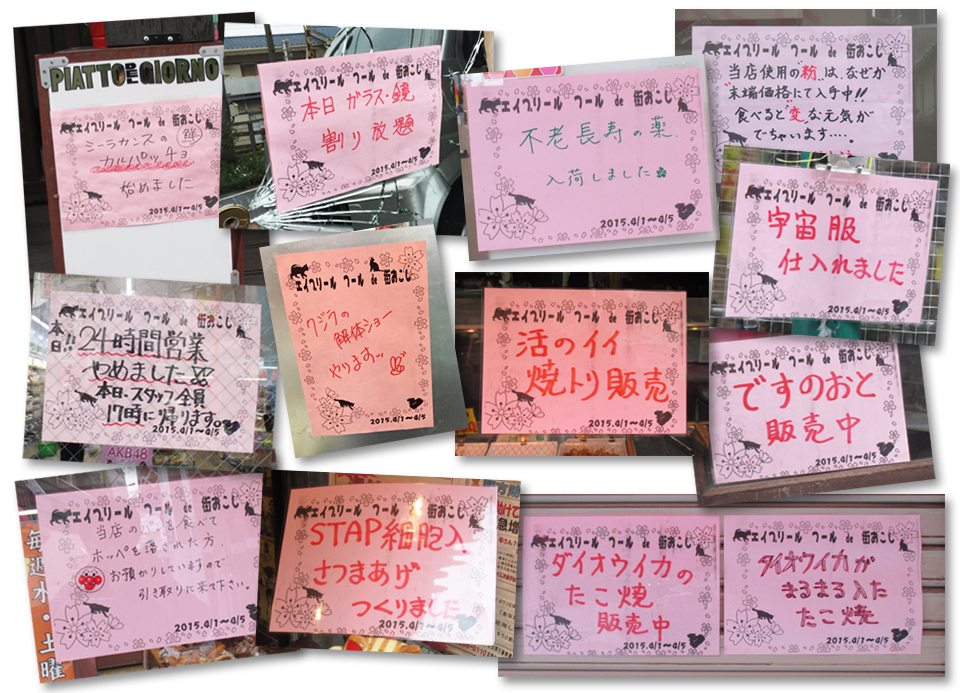 PIATTO DEL GIORNO
シーラカンスの
カルパッチョ
始めました
2015.4/1〜4/5
エイプリール フール de 街おこし
本日 ガラス・鏡
割り放題
2015.4/1〜4/5
エイプリール フール de 街おこし
不老長寿の薬
入荷しました
2015.4/1〜4/5
エイプリール フール de 街おこし
当店使用の粉は、なぜか
末端価格にて入手中!!
食べると変な元気が
でちゃいます....
エイプリール フール de 街おこし
宇宙服
仕入れました
2015.4/1〜4/5
エイプリール フール de 街おこし
本日!!
24時間営業
やめました
本日・スタッフ全員
17時に帰ります。
2015.4/1〜4/5
AKB48
エイプリール フール de 街おこし
クジラの
解体ショー
やります
2015.4/1〜4/5
エイプリール フール de 街おこし
活のイイ
焼トリ販売
2015.4/1〜4/5
エイプリール フール de 街おこし
ですのおと
販売中
2015.4/1〜4/5
エイプリール フール de 街おこし
当店の を食べて
ホッペを落された方
お預かりしていますので
引き取りに来て下さい。
2015.4/1〜4/5
毎週水・土曜
エイプリール フール de 街おこし
STAP細胞入
さつまあげ
つくりました
2015.4/1〜4/5
エイプリール フール de 街おこし
ダイオウイカの
たこ焼
販売中
2015.4/1〜4/5
エイプリール フール de 街おこし
ダイオウイカが
まるまる入た
たこ焼
2015.4/1〜4/5